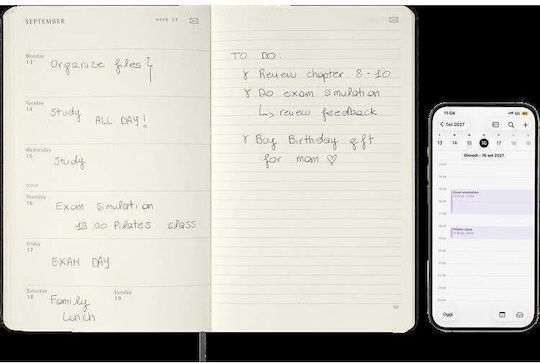 SEPTEMBER
week 37
Monday
13
Organize files
Tuesday
14
Study
ALL DAY!
Wednesday
15
Study
Thursday
16
Exam Simulation
18:00 Pilates class
Friday
17
EXAM DAY
Saturday
18
Family
Lunch
Sunday
19
TO DO:
Review chapter 8-10
Do exam simulation
↳ review feedback
Buy Birthday gift
for mom ♡
11:04
Set 2027
13 14 15 16 17 18 19
Giovedì - 16 set 2027
Exam simulation
Pilates class
Oggi